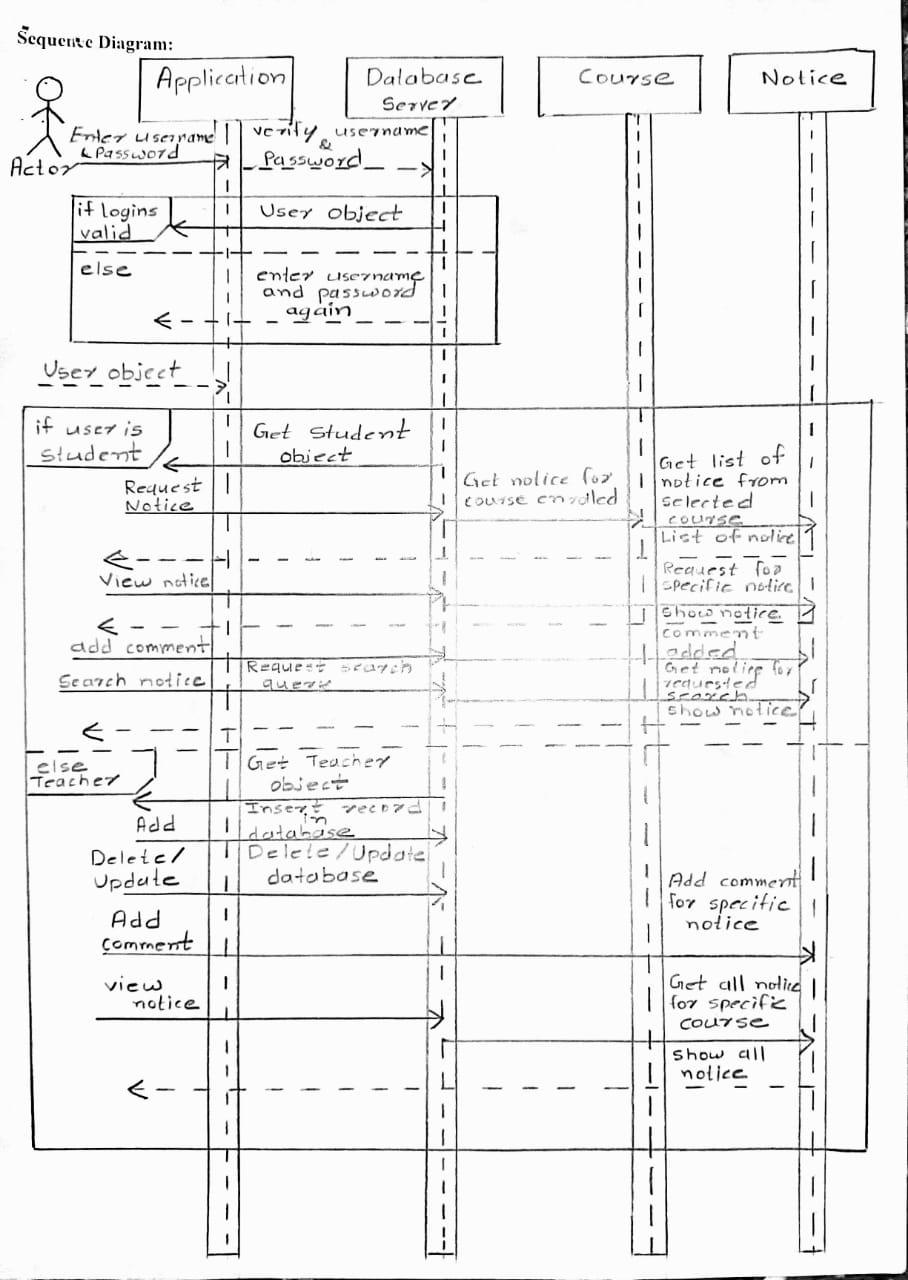 Sequence Diagram:
Application
Database
Server
Course
Notice
Actor
Enter username
& Password
verify username
&
Password
if logins
valid
User object
else
enter username
and password
again
User object
if user is
Student
Get Student
object
Request
Notice
Get notice for
course enrolled
Get list of
notice from
selected
course
List of notice
View notice
Request for
specific notice
show notice
add comment
comment
added
Search notice
Request search
query
Get notice for
requested
search
show notice
else
Teacher
Get Teacher
object
Add
Insert record
in
database
Delete/
Update
Delete/Update
database
Add
comment
Add comment
for specific
notice
view
notice
Get all notice
for specific
course
show all
notice